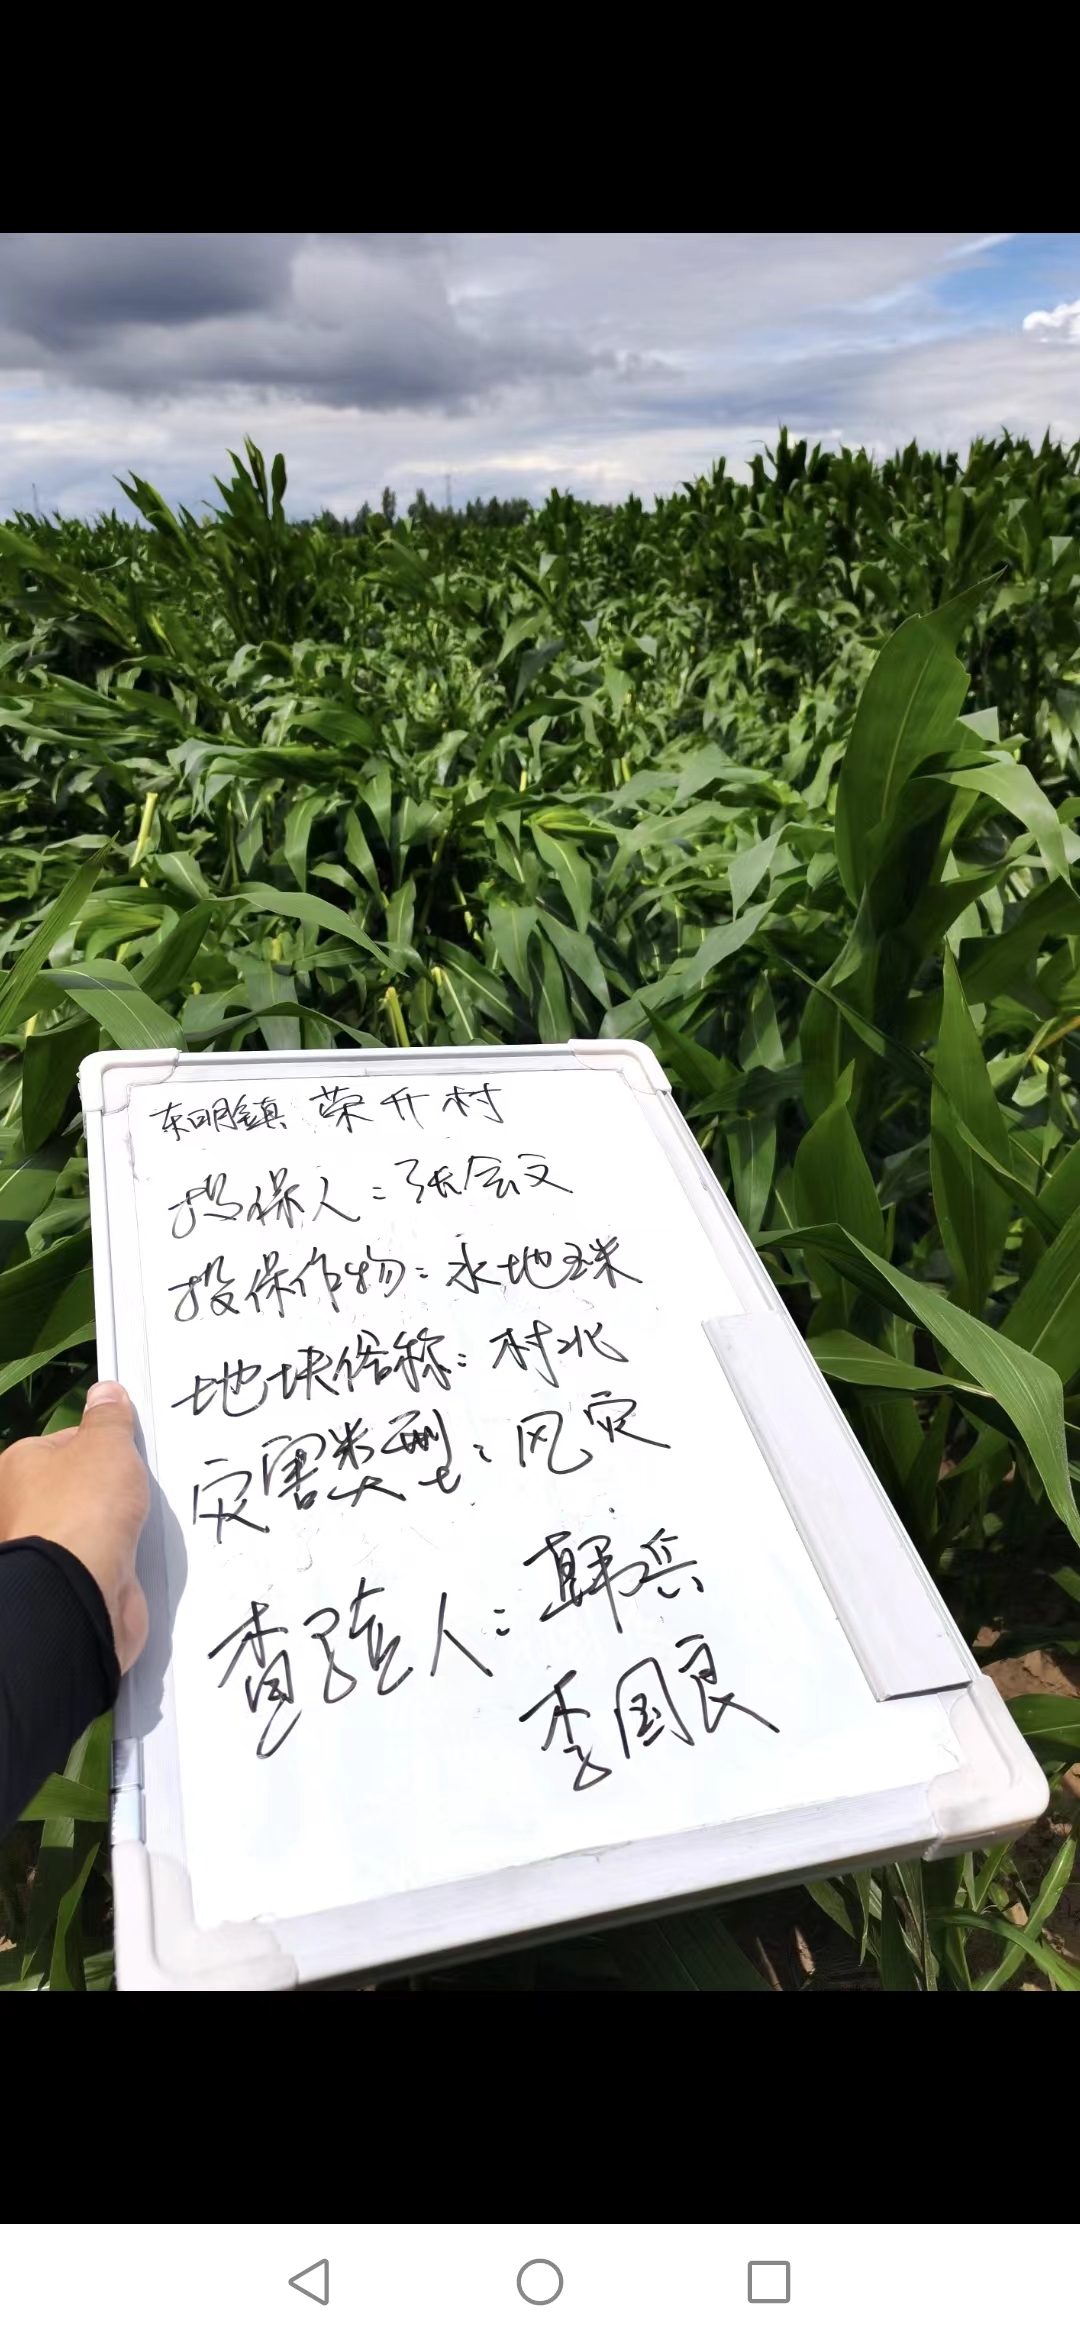 东明镇 荣升村
投保人：张会文
投保作物：水地玉米
地块俗称：村北
灾害类型：风灾
查验人：韩兵
李国良